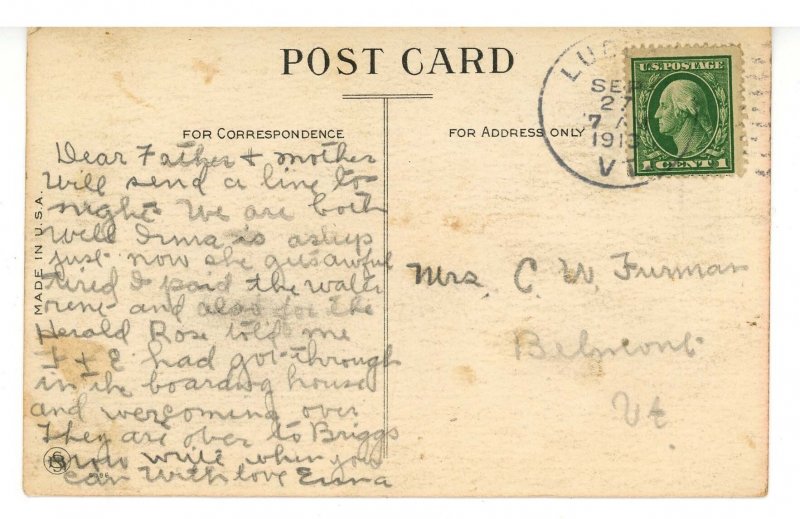 POST CARD
FOR CORRESPONDENCE
FOR ADDRESS ONLY
MADE IN U.S.A.
LU
SEP
27
7 A
1913
VT
U.S. POSTAGE
1 CENT 1
Dear Father + mother
Will send a line to
night We are both
well Irma is asleep
just now she gets awful
tired I paid the water
rent and also for the
Herald Rose told me
had got through
in the boarding house
and were coming over
They are over to Briggs
now write when you
can With love Erma
Mrs. C. W. Furman
Belmont
Vt